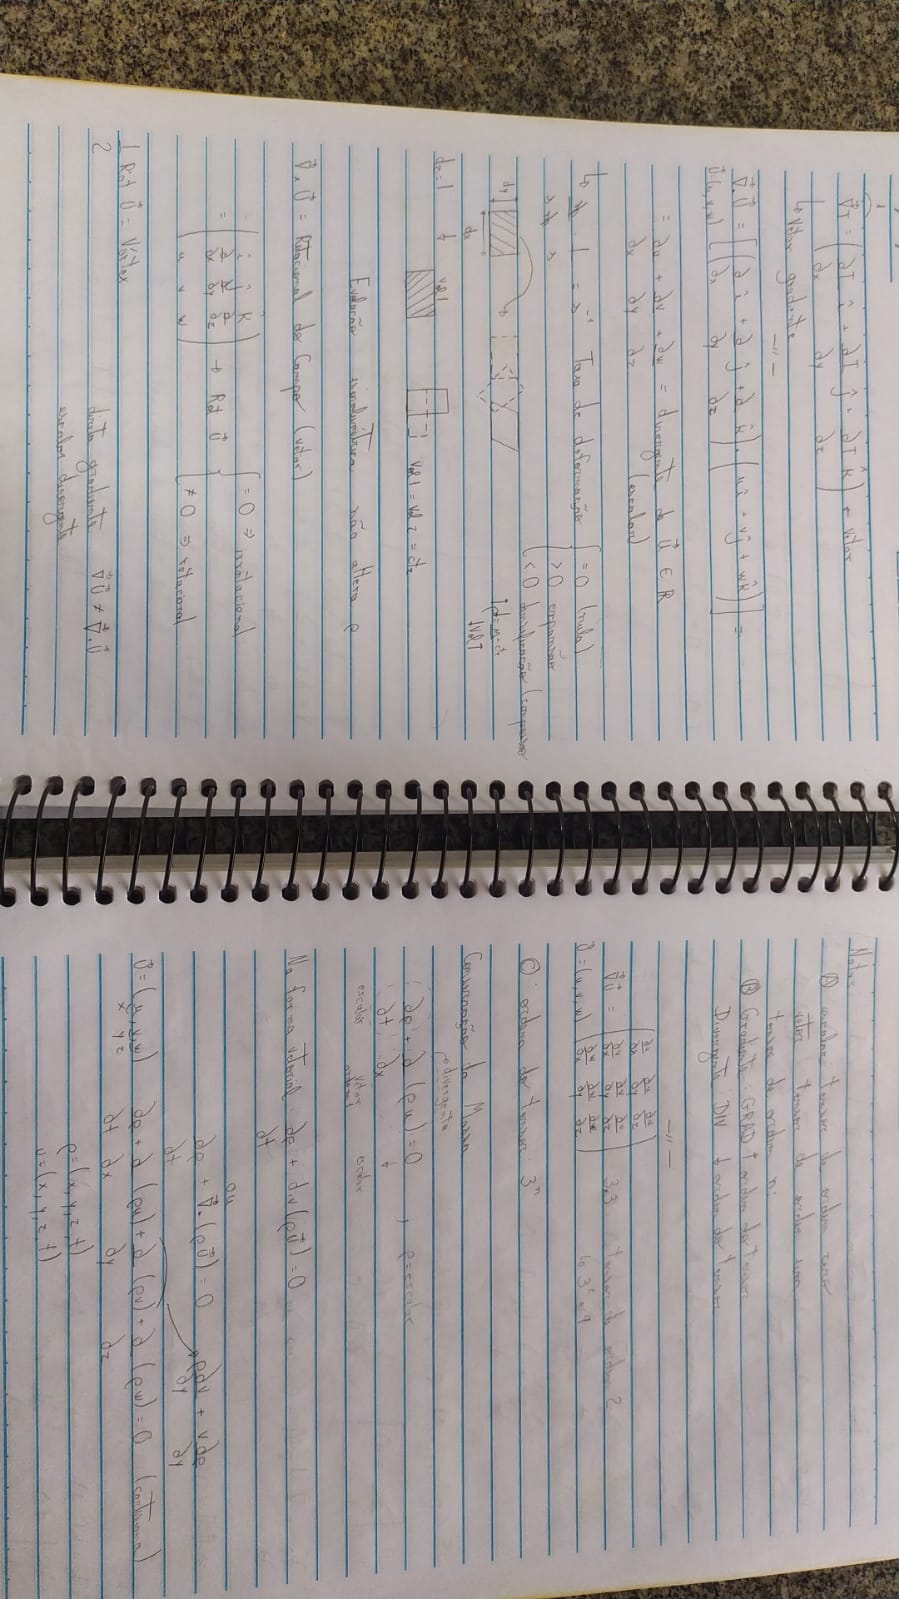 ∇T = (∂T/∂x î + ∂T/∂y ĵ + ∂T/∂z k̂) ← vetor
↳ Vetor gradiente
— // —
∇.U = [(∂/∂x î + ∂/∂y ĵ + ∂/∂z k̂) . (uî + vĵ + wk̂)] =
U=(u,v,w)
= ∂u/∂x + ∂v/∂y + ∂w/∂z = divergente de U ∈ R
(escalar)
↳ 1 = s⁻¹ Taxa de deformação { = 0 (nula)
> 0 expansão
< 0 densificação
dy dx
dz=1 Vol 1 Vol 1 = Vol 2 = cte
Evolução isovolumétrica não altera ρ
∇ x U = Rotacional do Campo (vetor)
= ( î ĵ k̂
∂/∂x ∂/∂y ∂/∂z
u v w ) → Rot U { = 0 ⇒ irrotacional
≠ 0 ⇒ rotacional
1/2 Rot U = Vórtex
gradiente ∇U ≠ ∇.U
escalar divergente
Nota:
Ⓐ escalar tensor de ordem zero
vetor tensor de ordem um
tensor de ordem n:
Ⓑ Gradiente: GRAD ↑ ordem do tensor
Divergente: DIV ↓ ordem do tensor
— // —
∇U = ( ∂u/∂x ∂u/∂y ∂u/∂z
∂v/∂x ∂v/∂y ∂v/∂z
∂w/∂x ∂w/∂y ∂w/∂z ) 3x3 tensor de ordem 2
U = (u,v,w) ↳ 3² = 9
Ⓒ ordem do tensor: 3ⁿ
Conservação da Massa
→ divergente
∂ρ/∂t + ∂/∂x (ρu) = 0 , ρ = escalar
escalar vetor escalar
Na forma vetorial: ∂ρ/∂t + div (ρU) = 0
ou
∂ρ/∂t + ∇.(ρU) = 0
ρ∂v/∂y + v∂ρ/∂y
U = (u,v,w) ∂ρ/∂t + ∂/∂x (ρu) + ∂/∂y (ρv) + ∂/∂z (ρw) = 0
x y z
ρ = (x,y,z,t)
U = (x,y,z,t)